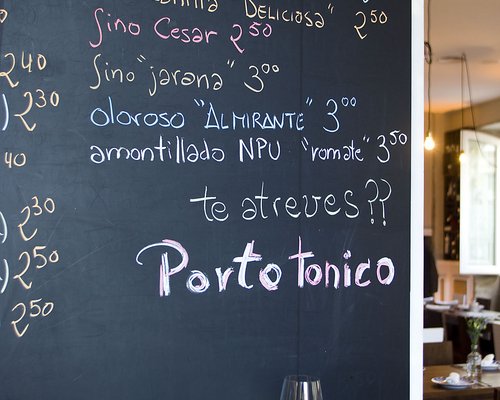 "DELICIOSA" 2⁵⁰
fino Cesar 2⁵⁰
fino "jarana" 3⁰⁰
oloroso "ALMIRANTE" 3⁰⁰
amontillado NPU "romate" 3⁵⁰
te atreves??
Porto tonico
2⁴⁰
) 2³⁰
40
) 2³⁰
) 2⁵⁰
2⁵⁰